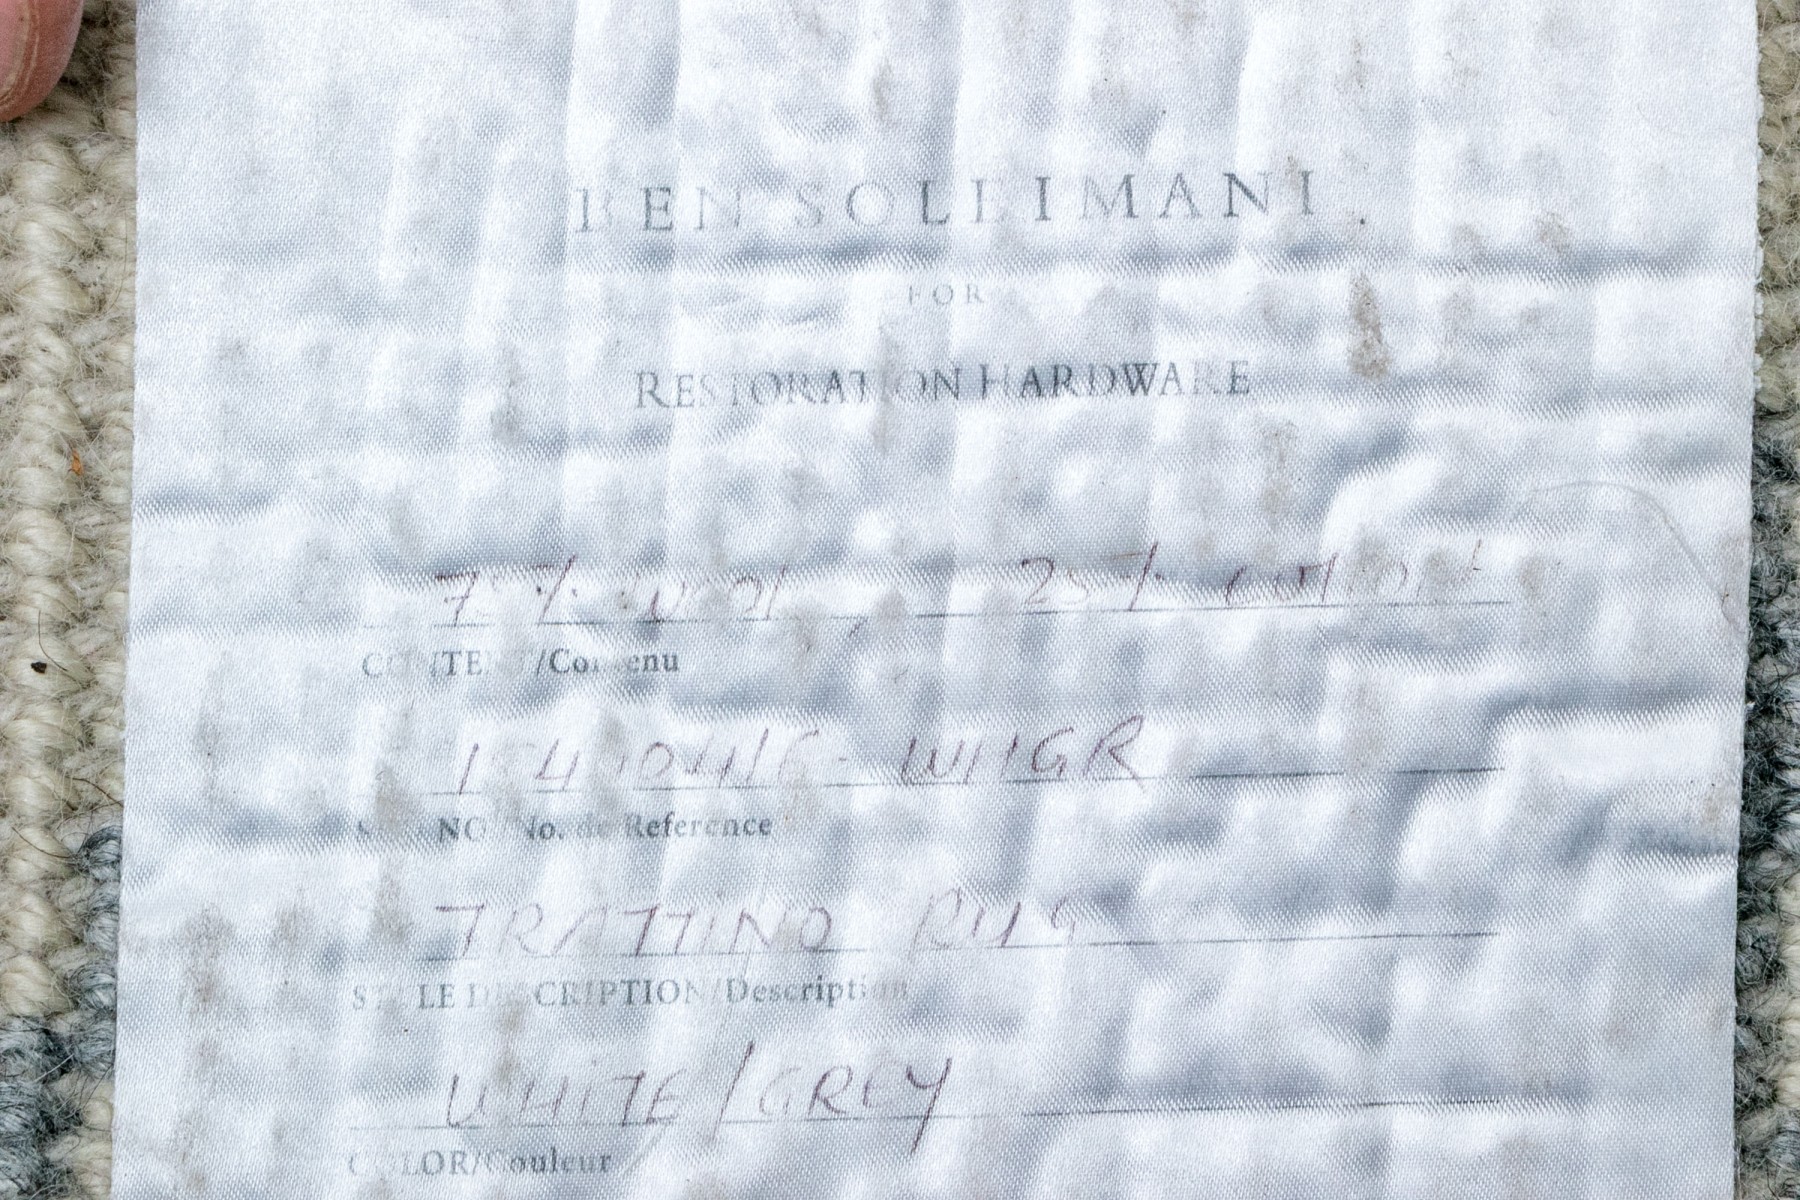 BEN SOLEIMANI
FOR
RESTORATION HARDWARE
75% wool 25% cotton
CONTENT/Contenu
WHGR
NO No. de Reference
TRATTINO RUG
STYLE DESCRIPTION/Description
WHITE/GREY
COLOR/Couleur